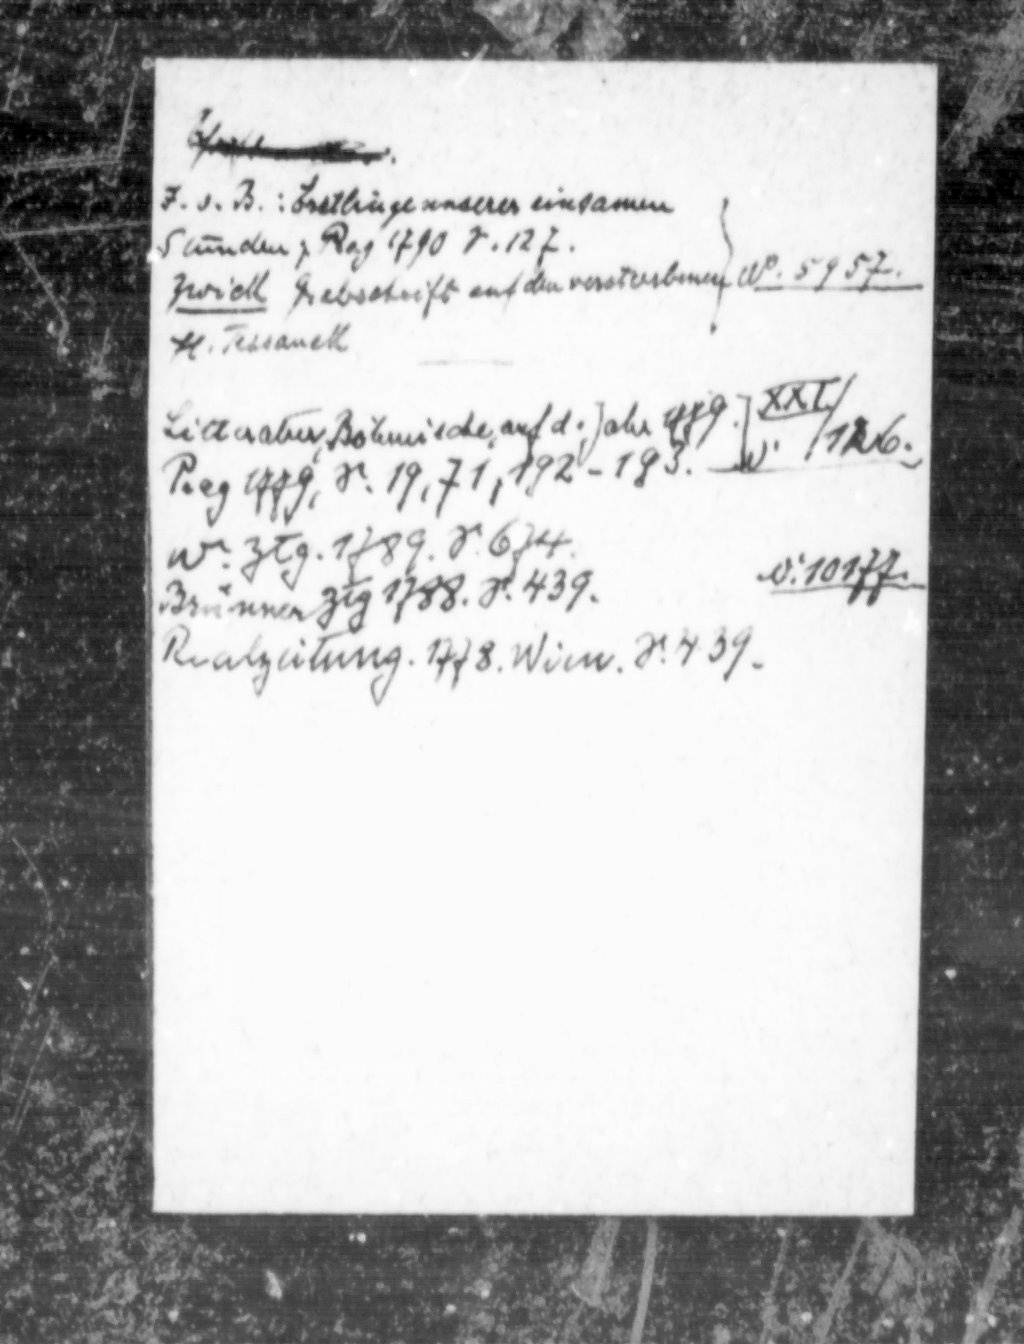 F. v. B.: Erstlinge unserer einsamen
Stunden, Prag 1790 S. 127.
Zwick Grabschrift auf den verstorbenen
H. Tessanek
N°. 5957.
Litteratur, Böhmische, auf d. Jahr 1779.
Prag 1779, S. 19, 71, 192-193.
XXI/126.
Wr. Ztg. 1789. S. 674.
Brünner Ztg 1788. S. 439.
10177.
Realzeitung. 1778. Wien. S. 439.